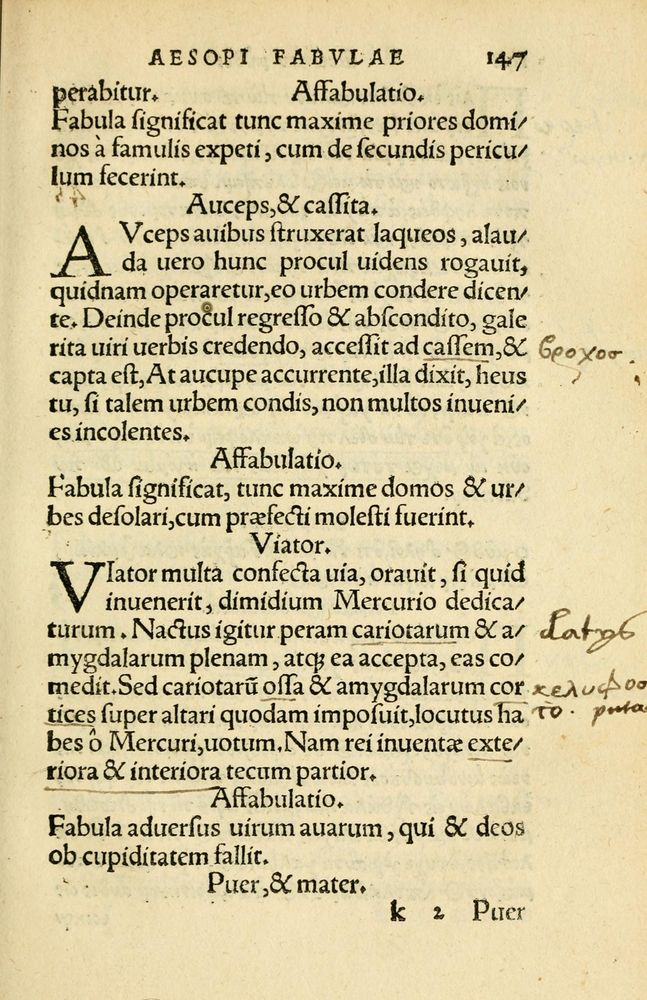 AESOPI FABVLAE 147
perabitur. Affabulatio.
Fabula ſignificat tunc maxime priores domi/
nos à famulis expeti, cum de ſecundis pericu/
lum fecerint.
Auceps,& caſſita.
AVceps auibus ſtruxerat laqueos, alau/
da uero hunc procul uidens rogauit,
quidnam operaretur,eo urbem condere dicen/
te. Deinde procul regreſſo & abſcondito, gale
rita uiri uerbis credendo, acceſſit ad caſſem,& βροχοσ.
capta eſt, At aucupe accurrente,illa dixit, heus
tu, ſi talem urbem condis, non multos inueni/
es incolentes.
Affabulatio.
Fabula ſignificat, tunc maxime domos & ur/
bes deſolari,cum præfecti moleſti fuerint.
Viator.
VIator multa confecta uia, orauit, ſi quid
inuenerit, dimidium Mercurio dedica/
turum. Nactus igitur peram cariotarum & a/
mygdalarum plenam, atq; ea accepta, eas co/
medit.Sed cariotarũ oſſa & amygdalarum cor κελυφοσ
tices ſuper altari quodam impoſuit,locutus ha το.
bes ô Mercuri,uotum.Nam rei inuentæ exte/
riora & interiora tecum partior.
Affabulatio.
Fabula aduerſus uirum auarum, qui & deos
ob cupiditatem fallit.
Puer,& mater.
k 2 Puer